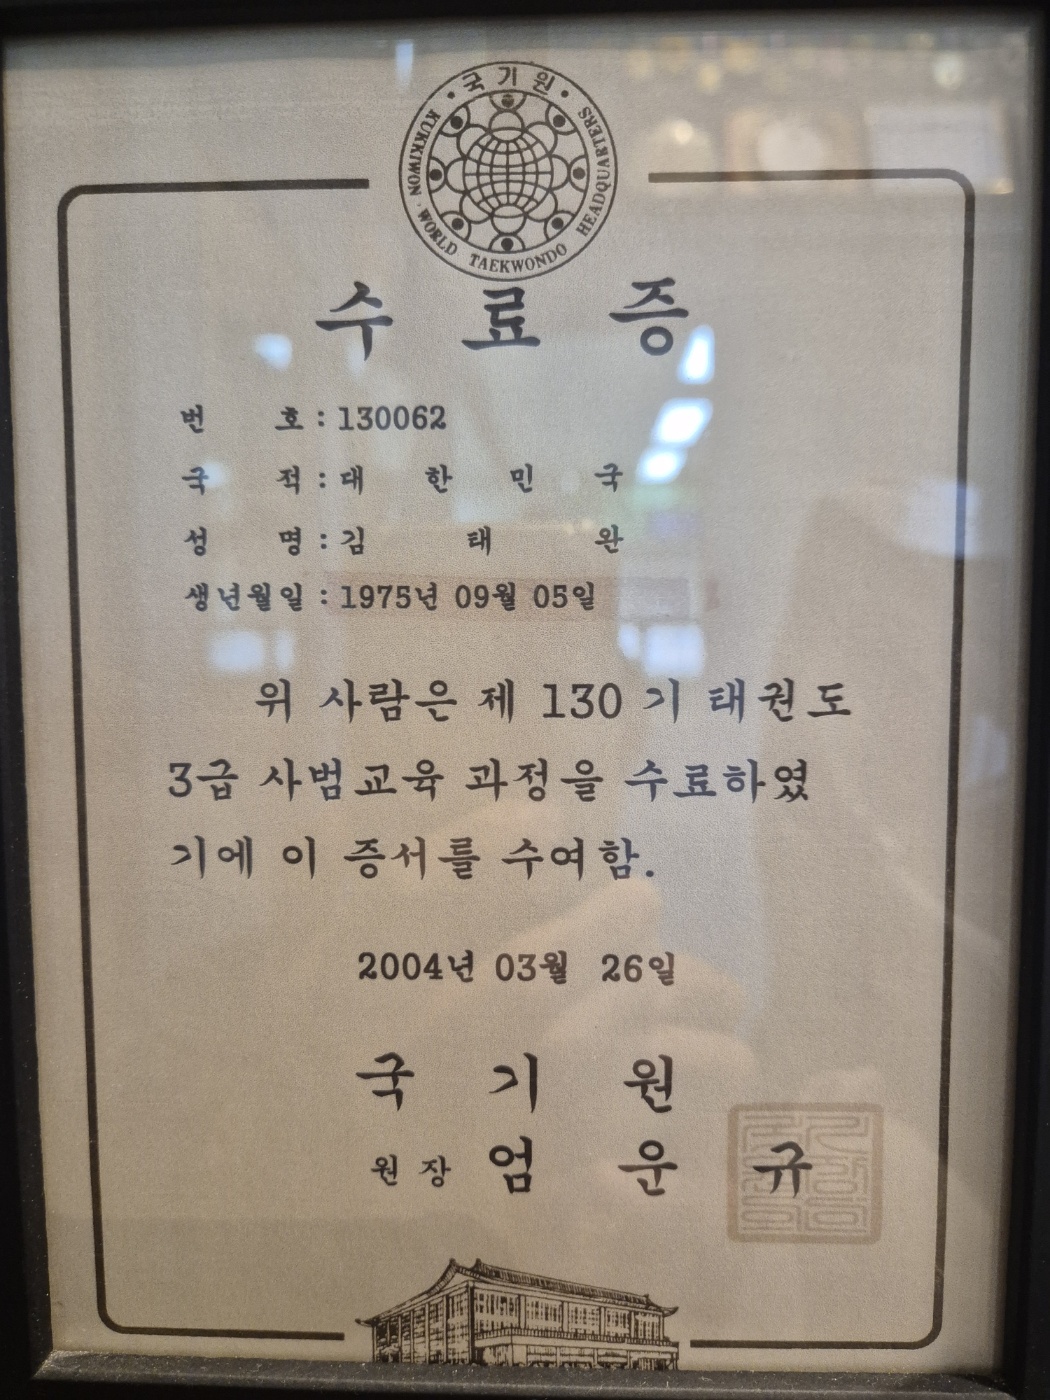 국기원
KUKKIWON · WORLD TAEKWONDO HEADQUARTERS
수료증
번 호 : 130062
국 적 : 대 한 민 국
성 명 : 김 태 완
생년월일 : 1975년 09월 05일
위 사람은 제 130 기 태권도
3급 사범교육 과정을 수료하였
기에 이 증서를 수여함.
2004년 03월 26일
국 기 원
원 장 엄 운 규